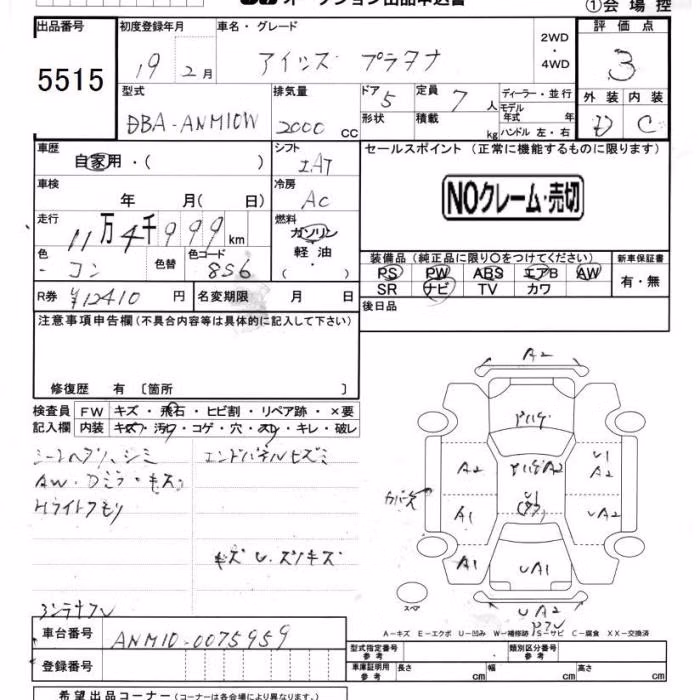 オークション出品申込書
①会場控
出品番号
5515
初度登録年月
19 2月
車名・グレード
アイシス プラタナ
2WD
・
4WD
評価点
3
型式
DBA-ANM10W
排気量
2000 cc
ドア 5
形状
定員 7 人
積載 kg
ディーラー・並行
モデル年式 年
ハンドル 左・右
外装 内装
D C
車歴
自家用・( )
シフト
IAT
セールスポイント (正常に機能するものに限ります)
NOクレーム・売切
車検
年 月( 日)
冷房
AC
走行
11万4千999km
燃料
ガソリン
軽油
・( )
色
コン
色替
色コード
8S6
装備品 (純正品に限り〇をつけてください)
新車保証書
PS PW ABS エアB AW
SR ナビ TV カワ
有・無
R券 ¥12410 円
名変期限 月 日
後日品
注意事項申告欄 (不具合内容等は具体的に記入して下さい)
修復歴 有 〔箇所 〕
検査員記入欄
FW キズ・飛石・ヒビ割・リペア跡・×要
内装 キズ・汚れ・コゲ・穴・スレ・キレ・破レ
シートヘタリ、シミ
エンドパネルヒズミ
AW・Dミラーキズ
Hライトクモリ
キズ U、スリキズ
A2
A2
A2
U1
A2
U1
A1
UA2
A1
UA1
UA2
スペア
A-キズ E-エクボ U-凹み W-補修跡 S-サビ C-腐食 XX-交換済
車台番号 ANM10-0075959
登録番号
型式指定番号 参考
類別区分番号 参考
車庫証明用 参考
長さ cm
幅 cm
高さ cm
希望出品コーナー (コーナーは各会場により異なります。)